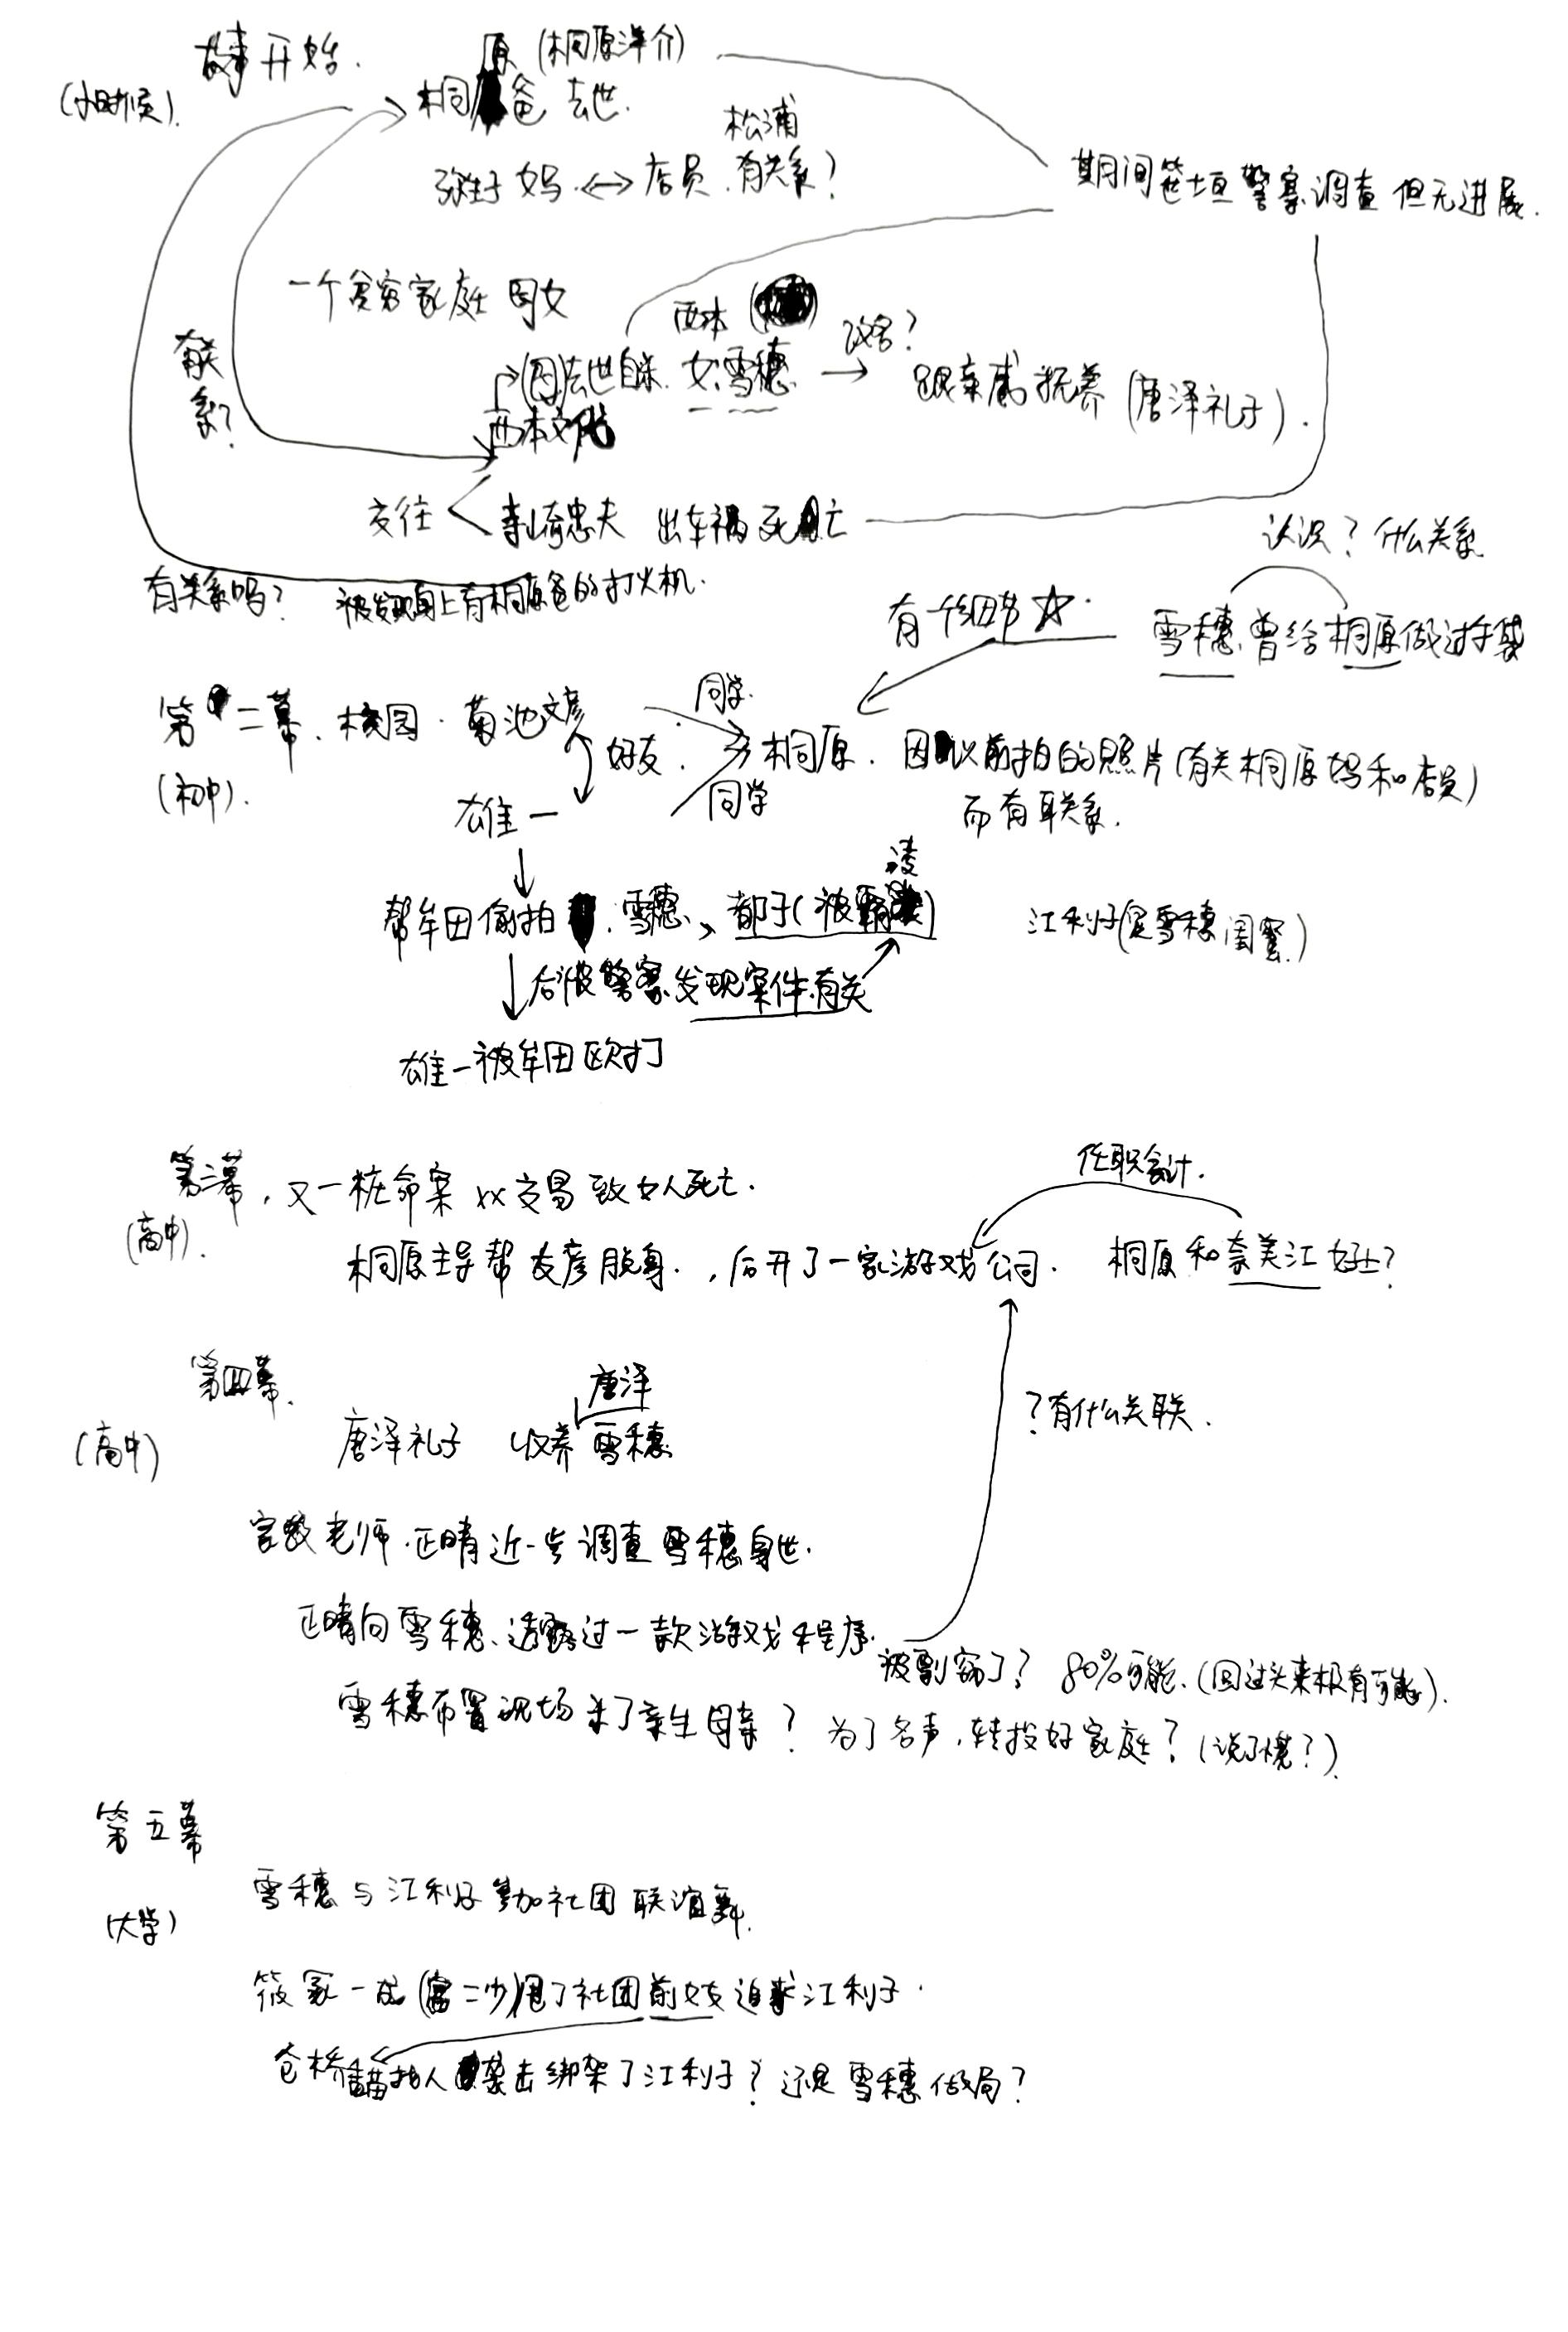 故事开始.
(小时候).
原 (桐原洋介)
桐爸 去世.
松浦
弥生子 妈 ⟷ 店员 有关系?
期间笹垣警察调查 但无进展.
一个贫穷家庭 母女
有关系?
西本
改名?
(母)去世自杀. 女:雪穗 → 跟亲戚抚养 (唐泽礼子).
西本文代
交往 < 寺崎忠夫 出车祸死亡
有关系吗? 被发现身上有桐原爸的打火机.
认识? 什么关系
有一个细节☆. 雪穗曾给桐原做过手袋
第二幕. 校园. 菊池文彦
(初中).
同学.
好友.
桐原. 因以前拍的照片(有关桐原妈和店员)
而有联系.
雄一
同学
凌
帮牟田偷拍 雪穗、都子(被霸)
江利子(是雪穗闺蜜.)
后被警察发现案件有关
雄一被牟田欧打
第三幕, 又一桩命案 xx交易致女人死亡.
(高中).
任职会计.
桐原主导帮友彦脱身. , 后开了一家游戏公司. 桐原和奈美江好上?
第四幕.
(高中)
唐泽
唐泽礼子 收养 雪穗
?有什么关联.
家教老师.正晴近一步调查雪穗身世.
正晴向雪穗透露过一款游戏程序.
被剽窃了? 80%可能.(回过头来极有可能).
雪穗布置现场杀了亲生母亲? 为了名声,转投好家庭? (说了谎?).
第五幕
(大学)
雪穗与江利子参加社团联谊舞.
筱冢一成(富二少)甩了社团前女友追求江利子.
仓桥香苗找人袭击绑架了江利子? 还是雪穗做局?